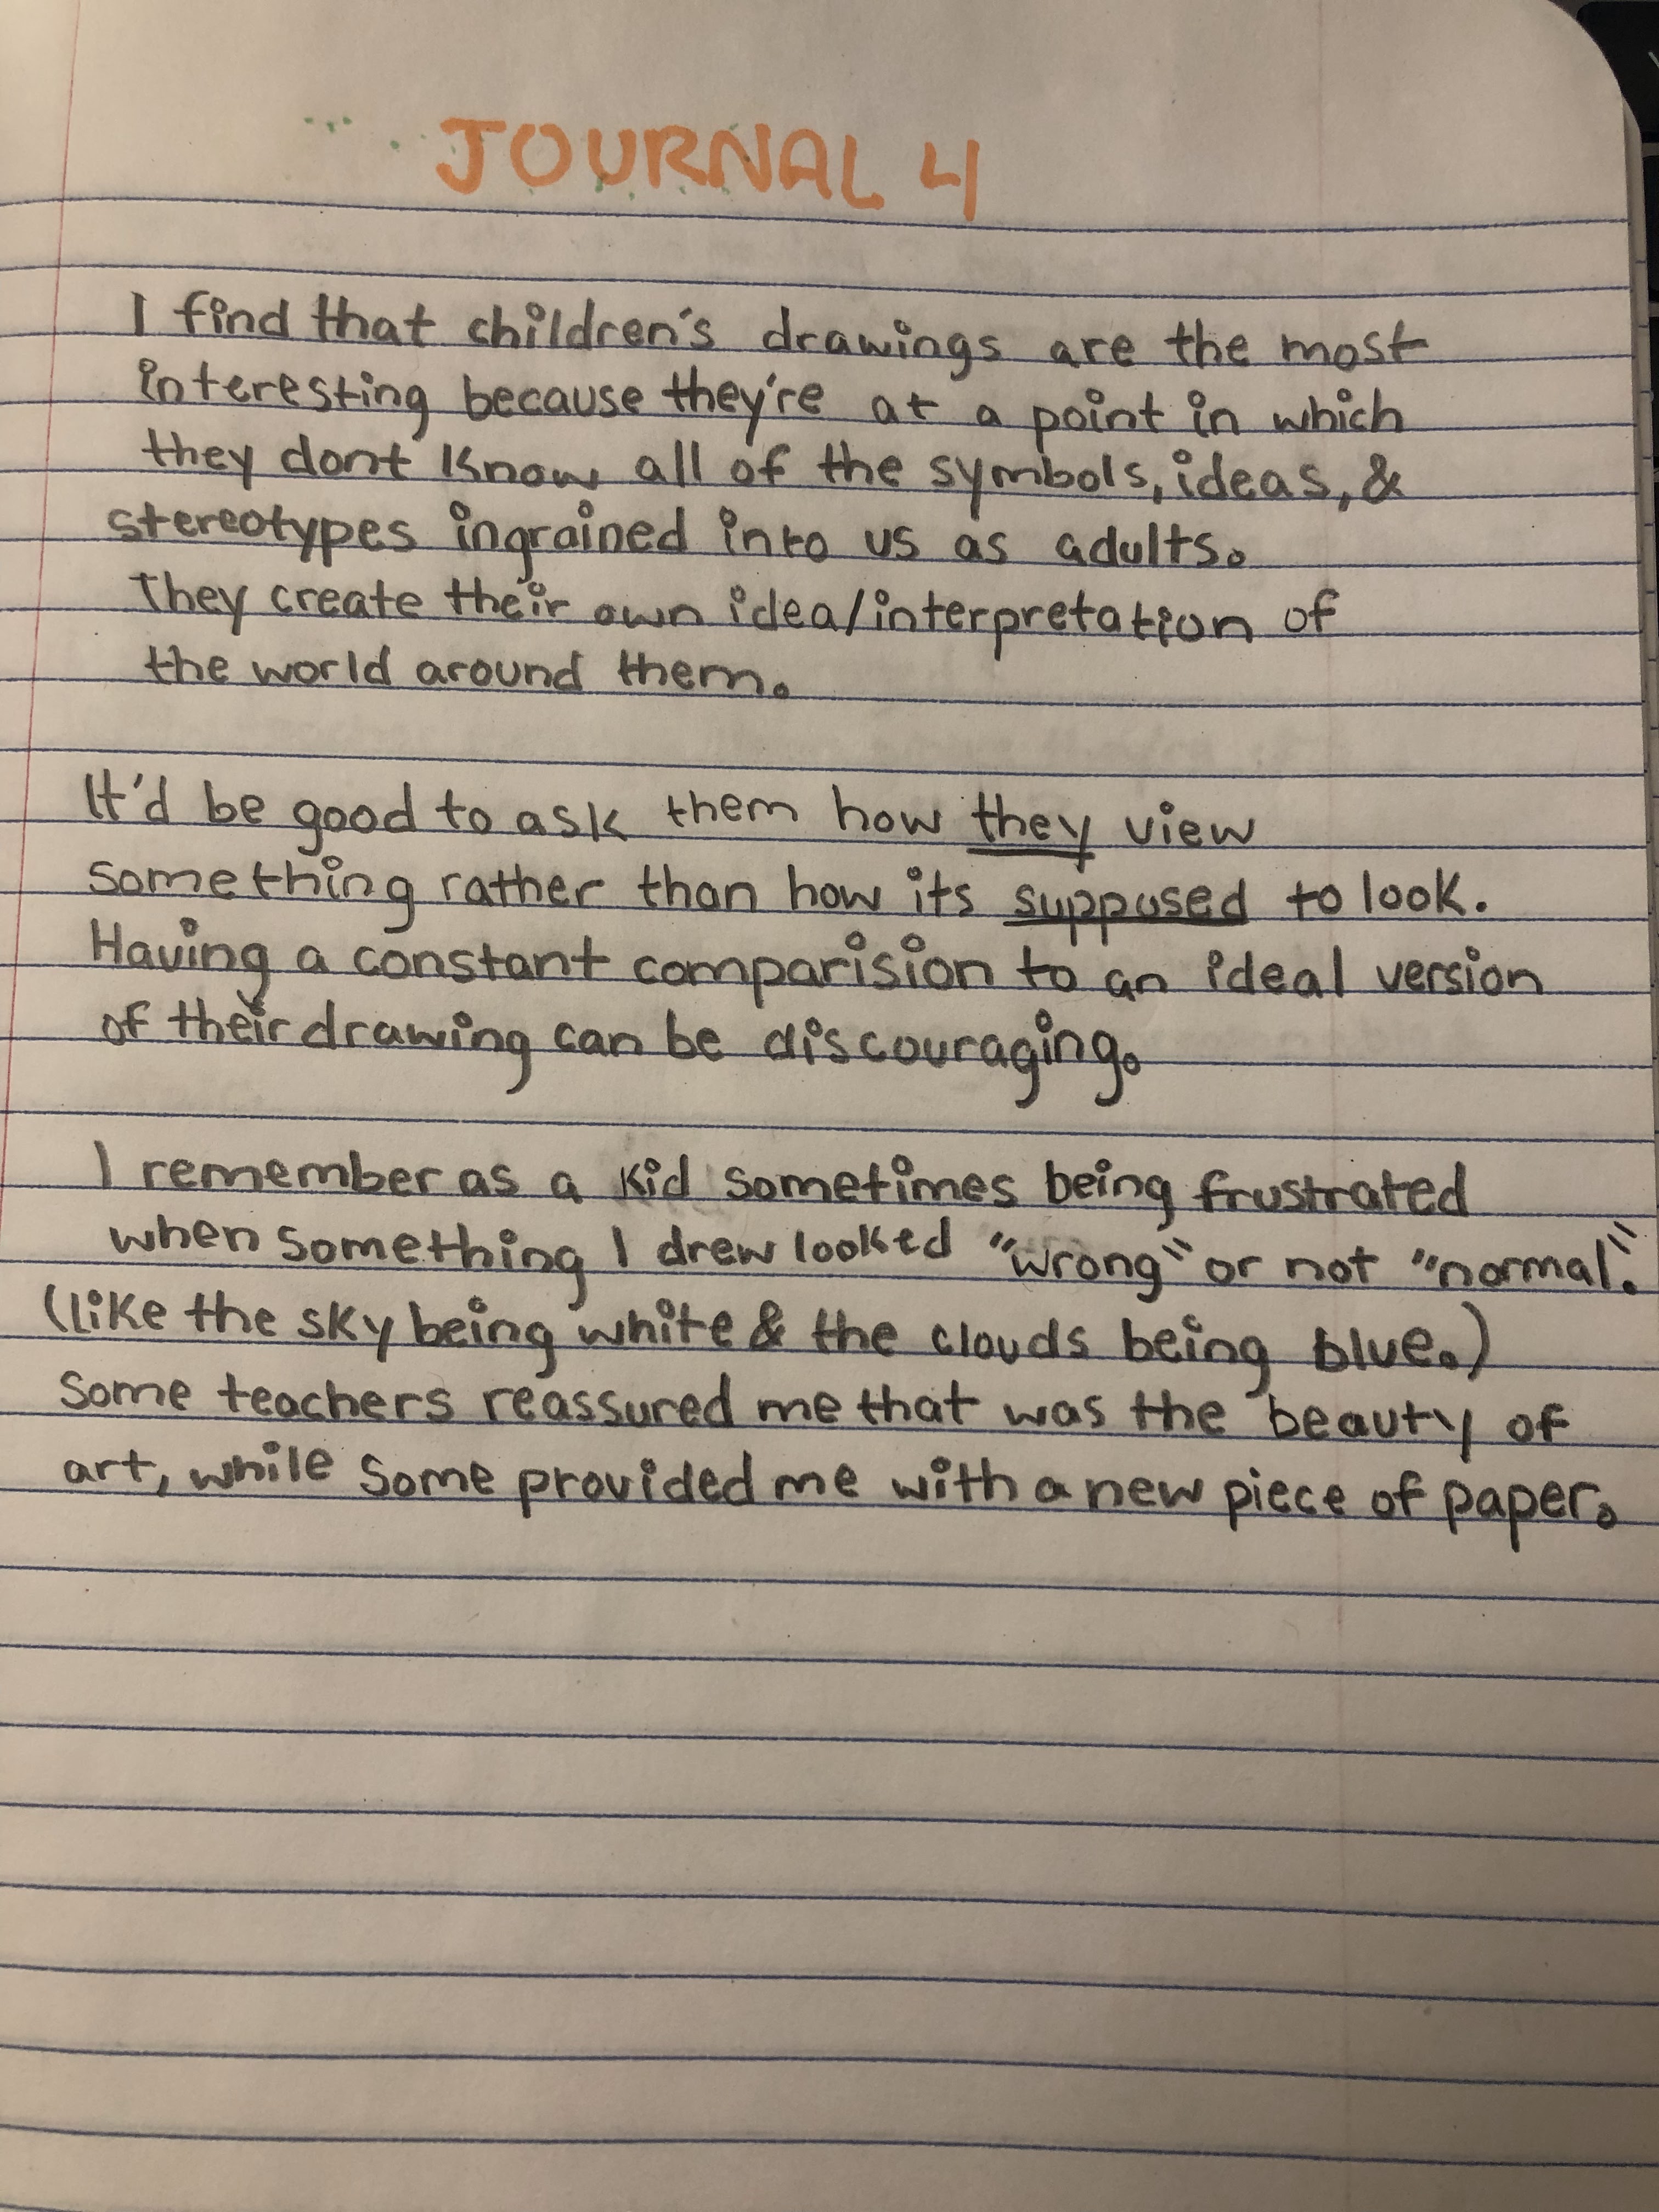 JOURNAL 4
I find that children's drawings are the most
interesting because they're at a point in which
they dont know all of the symbols, ideas, &
stereotypes ingrained into us as adults.
They create their own idea/interpretation of
the world around them.
It'd be good to ask them how they view
something rather than how its supposed to look.
Having a constant comparision to an ideal version
of their drawing can be discouraging.
I remember as a kid sometimes being frustrated
when something I drew looked "wrong" or not "normal."
(like the sky being white & the clouds being blue.)
Some teachers reassured me that was the beauty of
art, while some provided me with a new piece of paper.